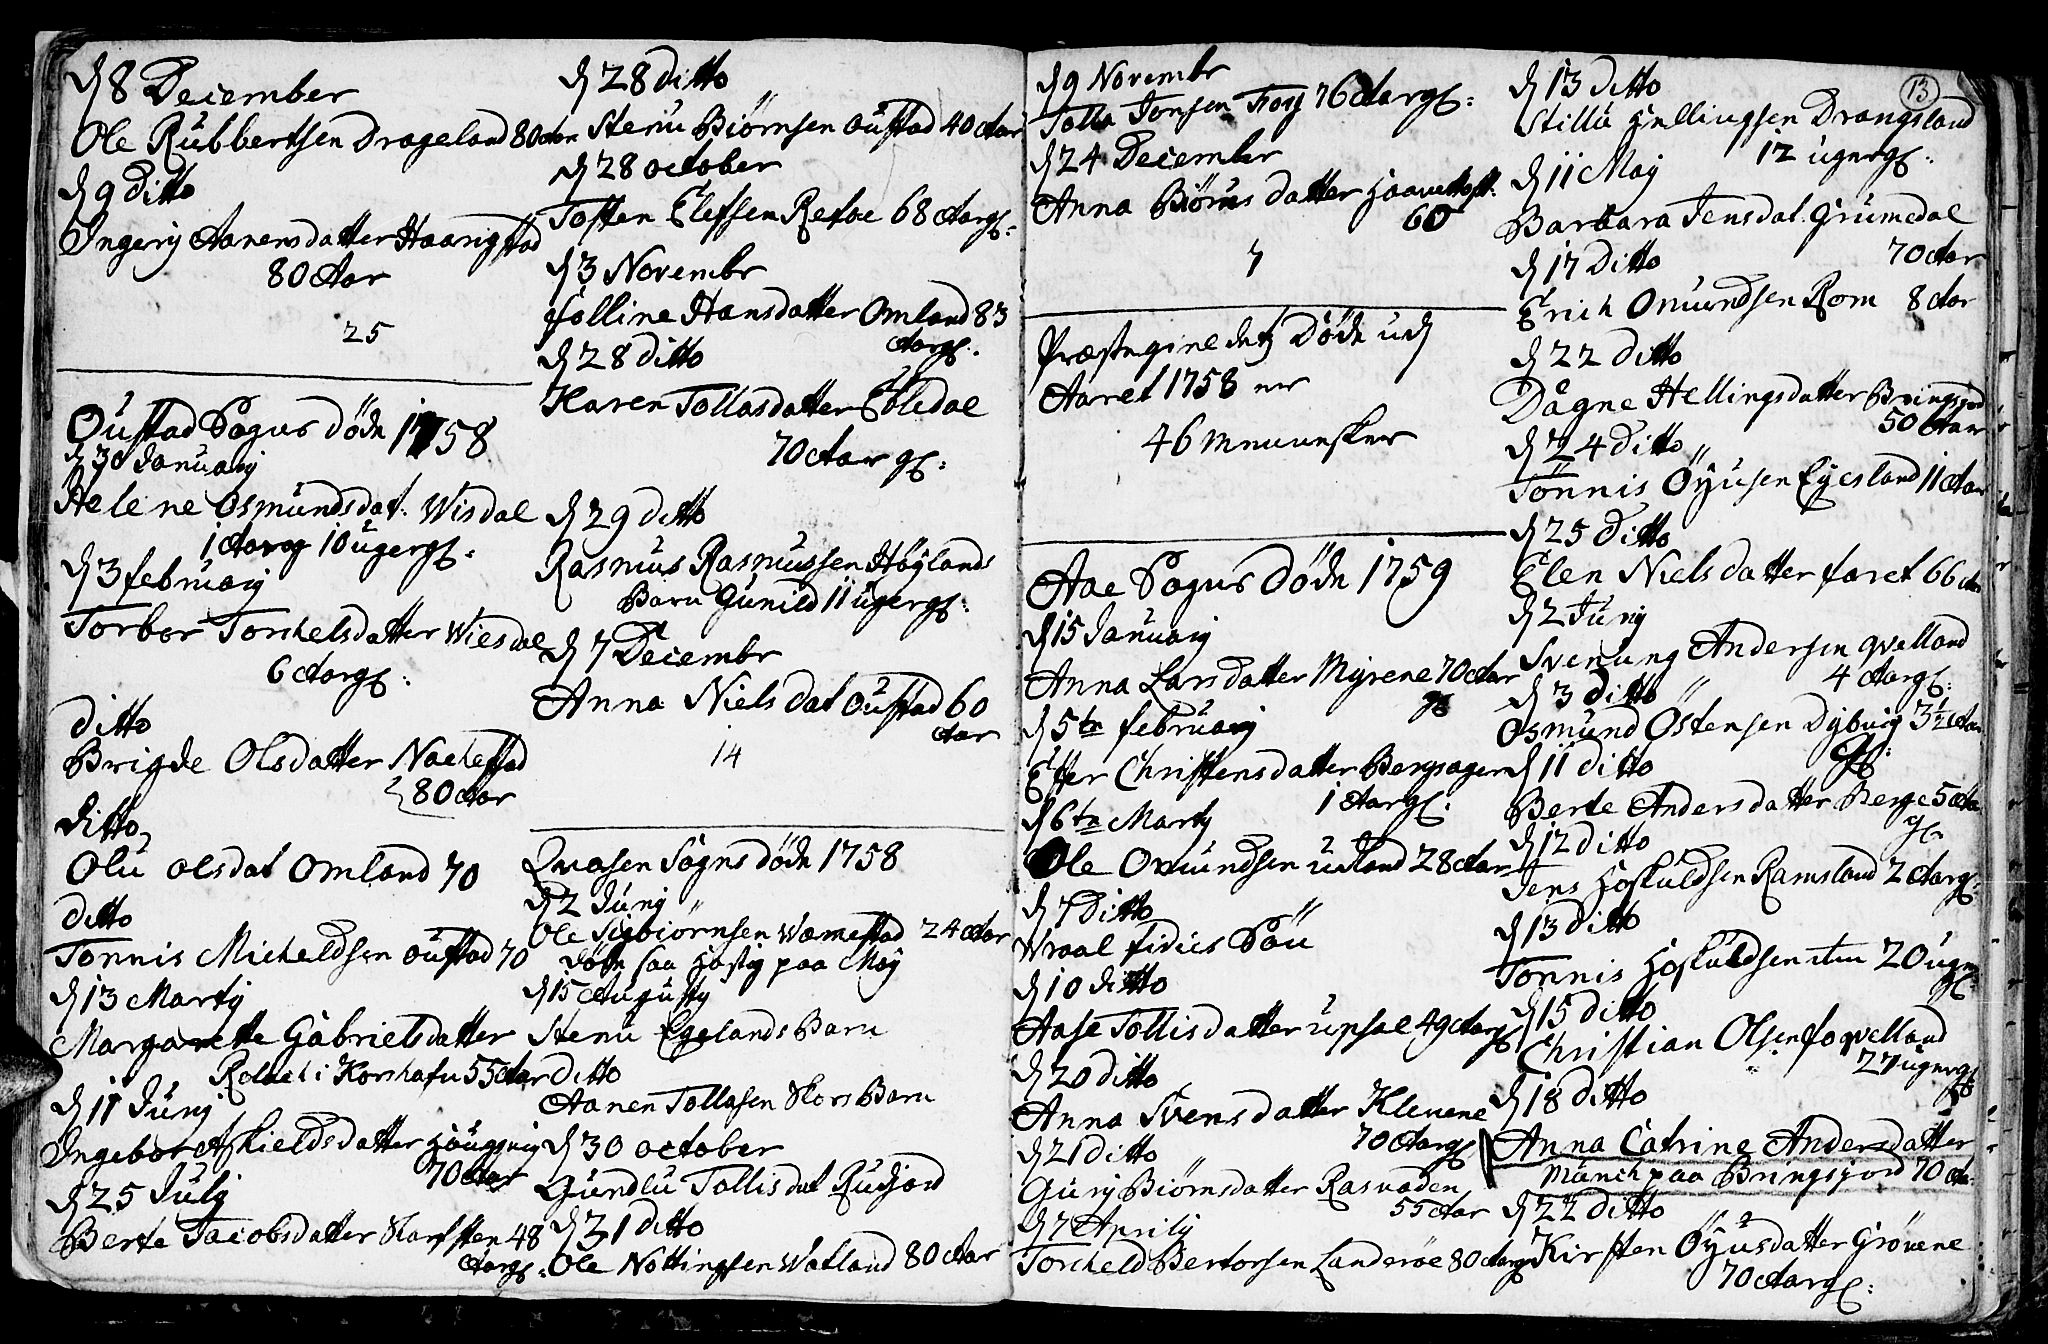 d 8 December
Ole Rubbertsen Drageland 80 Aar
d 9 ditto
Ingerij Aanensdatter Haarigstad
80 Aar
25
Oustad Sogns døde 1758
d 30 Januarij
Helene Osmundsdat: Wisdal
1 Aarg 10 ugergl:
d 3 februarij
Torbor Torchelsdatter Wiesdal
6 Aargl:
ditto
Brigde Olsdatter Nachestad
80 Aar
ditto
Olu olsdat Omland 70
ditto
Tonnis Micheldsen oustad 70
d 13 Martij
Margarette Gabrielsdatter
i Korshafn 55 Aar
d 11 Junij
Ingebor Aschieldsdatter
70 Aar
d 25 Julij
Berte Jacobsdatter 48
Aargl:
d 28 ditto
Stenu Biørnsen Oustad 40 Aar
d 28 october
Tosten Elefsen Refoe 68 Aargl:
d 3 Novembr
Jolline Hansdatter Omland 83
Aargl:
d 28 ditto
Karen Tollasdatter Ebledal
70 Aar gl:
d 29 ditto
Rasmus Rasmussen Høylands
Barn Gunild 11 ugergl:
d 7 Decembr
Anna Niels dat Oustad 60
Aar
14
Qvasen Sogns døde 1758
d 2 Junij
Ole Sigbiørnsen Wæmestad 24 Aar
døde saa hastig paa Møy
d 15 Augustij
Stenu Egelands Barn
ditto
Aanen Tollasen Skors Barn
d 30 october
Gundlu Tollisdat Rudjord
d 31 ditto
Ole Nottingsen Watland 80 Aar
d 9 Novembr
Tolla Tonsen Foss 76 Aargl:
d 24 December
Anna Biørns datter
60
7
Præstegieldetz Døde udj
Aaret 1758 er
46 mennesker
Aae Sogns Døde 1759
d 15 Januarij
Anna Larsdatter Myrene 70 Aar
gl
d 5te februarij
Efter Christensdatter Bergsagern
1 Aargl:
d 6te Martij
Ole Omundsen udland 28 Aar
d 7 Ditto
Wraal fidies Søn
d 10 ditto
Aase Tollisdatter upsal 49 Aargl
d 20 ditto
Anna Svensdatter Klevene
70 Aargl
d 21 ditto
Gurij Biørnsdatter Rasvaden
55 Aar
d 7 Aprilij
Torcheld Bertorsen Landerøe 80 Aargl
13
d 13 ditto
Stillu Hellingsen Drangsland
12 ugergl:
d 11 Maij
Barbara Jensdat: Grumedal
70 Aar
d 17 Ditto
Erich Omundsen Rom 8 Aar
d 22 ditto
Dågne Hellingsdatter Bringsjord
50 Aar
d 24 ditto
Tönnis Öyusen Egesland 11 Aar
d 25 ditto
Elen Nielsdatter faret 66 Aar
d 2 Junij
Svenung Andersen qvelland
4 Aargl:
d 3 ditto
Osmund Östensen Dybvig 3½ Aar
gl:
d 11 ditto
Berte Andersdatter Berge 5 Aar
gl
d 12 ditto
Jens Hoskuldsen Ramsland 2 Aargl:
d 13 ditto
Tonnis Hoskuldsen item 20 uger
gl:
d 15 ditto
Christian Olsen foqvelland
27 ugergl
d 18 ditto
Anna Catrine Andersdatter
Munch paa Bringsjord 70 Aar
d 22 ditto
Kirsten Öyusdatter Grövene
70 Aargl: